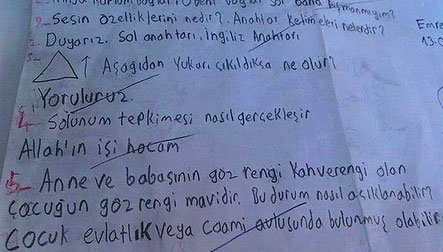 2- Sesin özelliklerini nedir? Anahtar kelimeleri nelerdir?
2- Duyarız. Sol anahtarı, İngiliz Anahtarı
Emre
13.0
3- ↑ Aşağıdan Yukarı çıkıldıkça ne olur?
Yoruluruz.
4- Solunum tepkimesi nasıl gerçekleşir
Allah'ın işi hocam
5- Anne ve babasının göz rengi Kahverengi olan
çocuğun göz rengi mavidir. Bu durum nasıl açıklanabilir?
Çocuk evlatlık veya Caami avlusunda bulunmuş olabilir